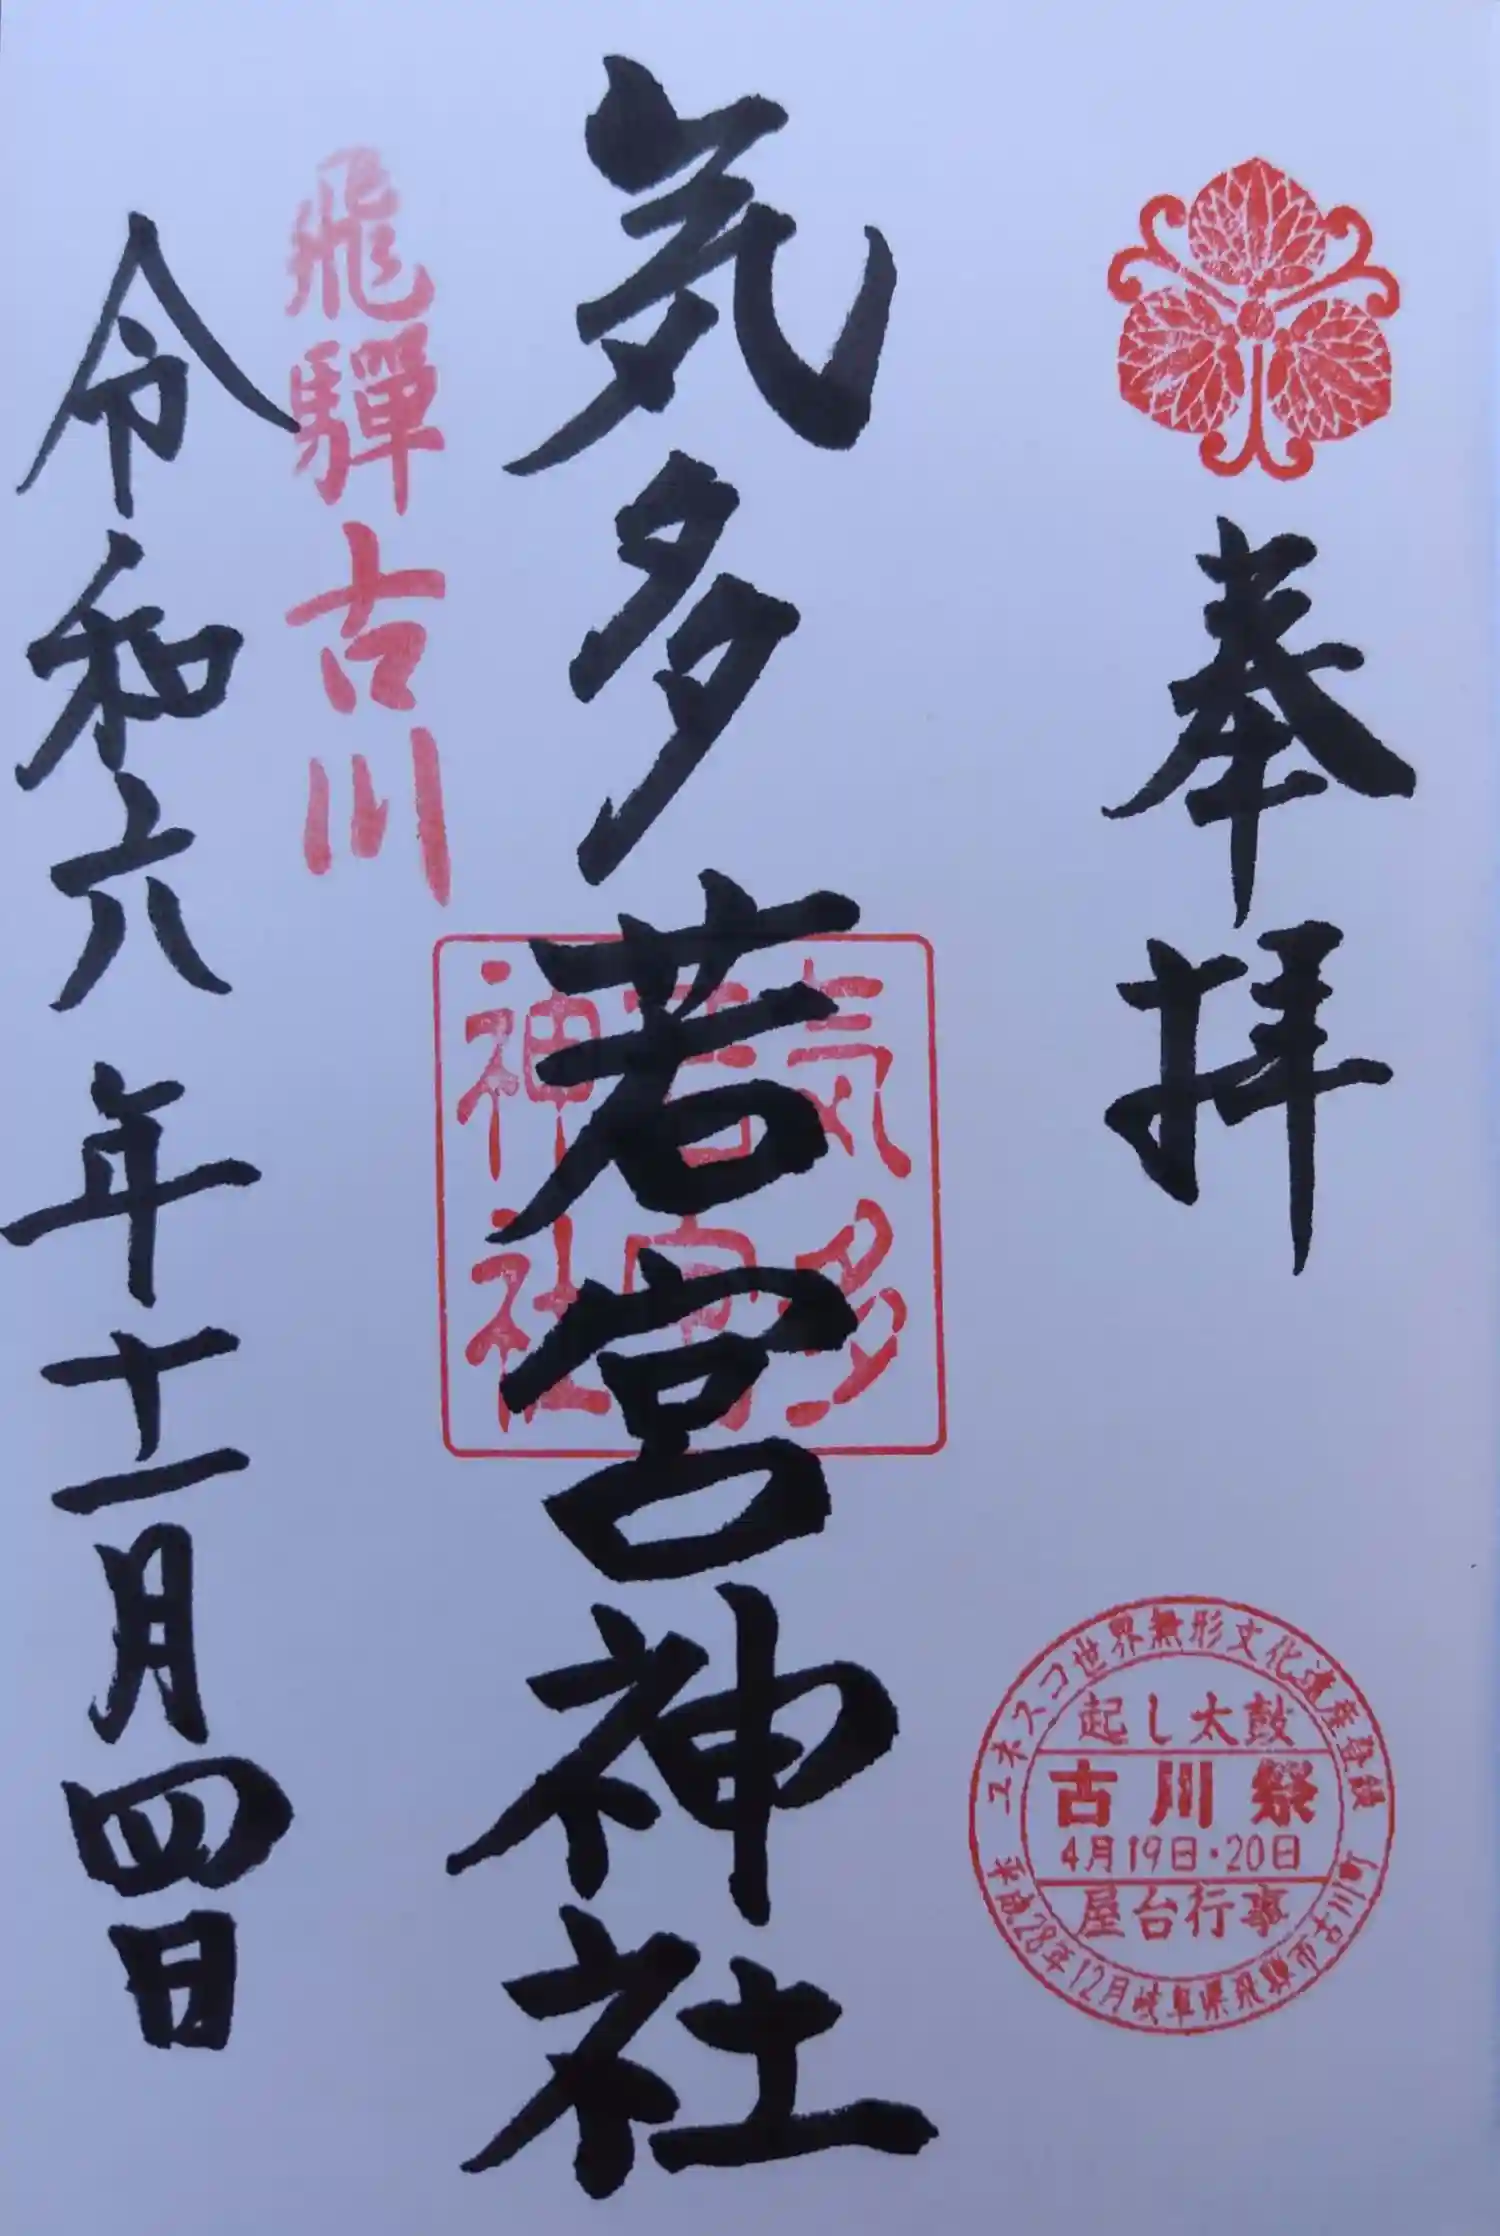 奉拝
ユネスコ世界無形文化遺産登録
起し太鼓
古川祭
4月19日・20日
屋台行事
平成28年12月岐阜県飛騨市古川町
気多若宮神社
気多
若宮
神社
飛驒古川
令和六年十一月四日